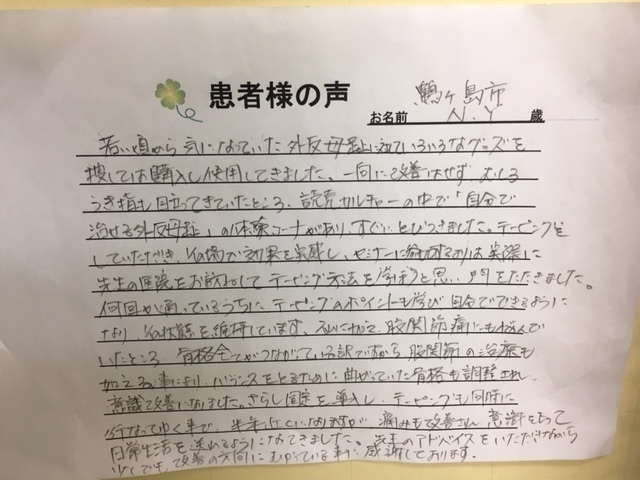 患者様の声
鶴ヶ島市
お名前 N.Y 歳
若い頃から気になっていた外反母趾に対していろいろなグッズを
捜しては購入し使用してきました。一向に改善はせず、むしろ
うき指も目立ってきていたところ、読売カルチャーの中で「自分で
治せる外反母趾」の体験コーナーがあり、すぐにとびつきました。テーピングを
していただき、その場で効果を実感し、セミナーに参加するよりは実際に
先生の医院をお訪ねしてテーピング方法を学ぼうと思い、門をたたきました。
何回か通っているうちにテーピングのポイントも学び自分でできるように
なり、その状態を維持しています。それに加えて、股関節痛にも悩んで
いたところ、骨格全てがつながっている訳ですから股関節の治療も
加える事により、バランスをとるために曲がっていた骨格も調整され
意識で改善になりました。さらし固定を導入し、テーピングも同時に
行なってゆく事で、半年近くになりますが、痛みも改善され、意識をもって
日常生活を送れるようになってきました。先生のアドバイスをいただきながら
少しでも、改善の方向にむかっている事に感謝しております。